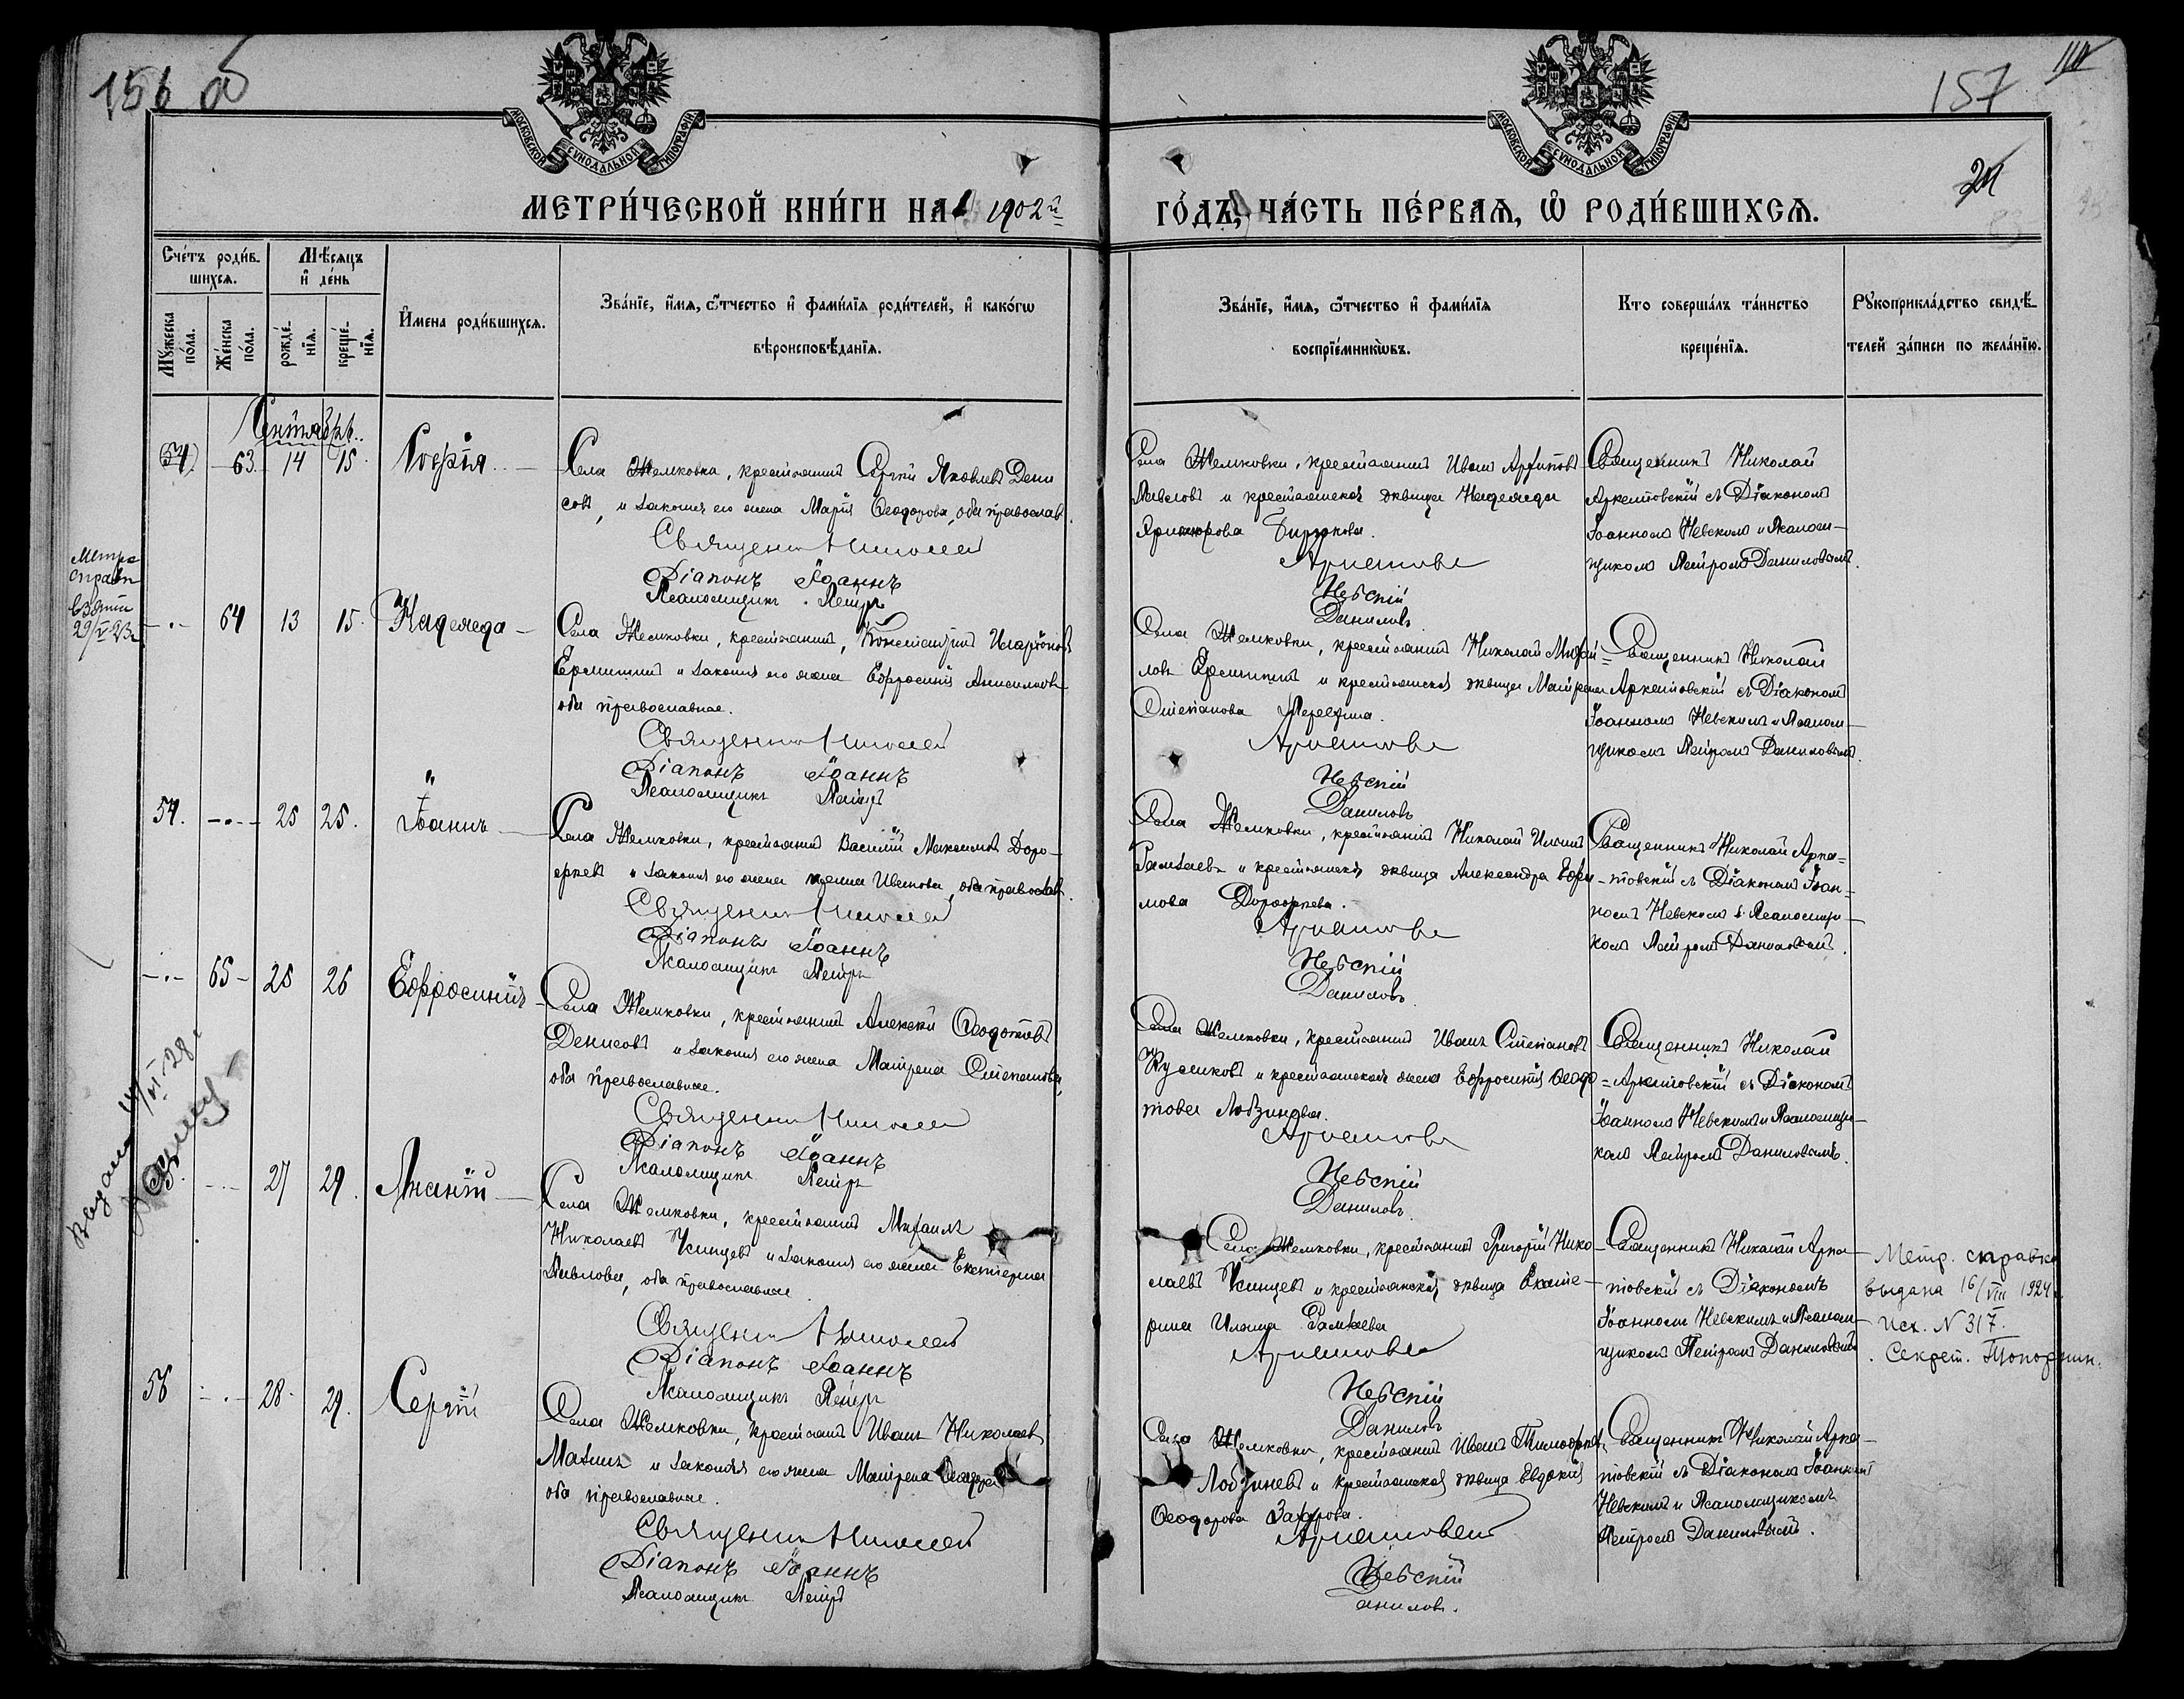 156 об
157
МОСКОВСКОЙ СѴНОДАЛЬНОЙ ТИПОГРАФІИ
МОСКОВСКОЙ СѴНОДАЛЬНОЙ ТИПОГРАФІИ
МЕТРИ́ЧЕСКОЙ КНИ́ГИ НА 1902й
ГО́ДЪ, ЧА́СТЬ ПЕ́РВАЯ, Ѡ РОДИ́ВШИХСЯ.
Сче́тъ роди́в-
шихся.
Мѣ́сяцъ
и҆ де́нь
Мꙋ́жеска
по́ла.
Же́нска
по́ла.
рожде́-
нїя.
креще́-
нїя.
И҆мена роди́вшихся.
Зва́нїе, и҆́мя, ѻ҆́тчество и҆ фами́лїя роди́телей, и҆ како́гѡ
вѣроисповѣ́данїя.
Зва́нїе, и҆́мя, ѻ҆́тчество и҆ фами́лїя
воспрїе́мникѡвъ.
Кто̀ соверша́лъ та́инство
креще́нїя.
Рꙋкоприкла́дство свидѣ́-
телей за́писи по жела́нїю.
Сентябрь.
63. 14 15. Софія
Села Жемковки, крестьянинъ Сергѣй Яковлевъ Дени
совъ, и законная его жена Марія Ѳеодорова, оба православ.
Священникъ Николай
Діаконъ Іоаннъ
Псаломщикъ Петръ
Села Жемковки, крестьянинъ Иванъ Архиповъ
Павловъ и крестьянская дѣвица Надежда
Бирюкова.
Аркатовскій
Невскій
Даниловъ
Священникъ Николай
Аркатовскій съ Діакономъ
Іоанномъ Невскимъ и Псалом-
щикомъ Петромъ Даниловымъ.
Метр
справк
взята
64 13 15. Надежда
Села Жемковки, крестьянинъ, Константинъ Иларіоновъ
Еремкинъ и законная его жена Евфросинія Анисимова
оба православные.
Священникъ Николай
Діаконъ Іоаннъ
Псаломщикъ Петръ
Села Жемковки, крестьянинъ Николай Михай-
ловъ и крестьянская дѣвица Матрена
Степанова
Аркатовскій
Невскій
Даниловъ
Священникъ Николай
Аркатовскій съ Діакономъ
Іоанномъ Невскимъ и Псалом-
щикомъ Петромъ Даниловымъ.
54. 25 25. Іоаннъ
Села Жемковки, крестьянинъ Василій Максимовъ Доро-
феевъ и законная его жена Иванова, оба православ.
Священникъ Николай
Діаконъ Іоаннъ
Псаломщикъ Петръ
Села Жемковки, крестьянинъ Николай Ильинъ
Рамзаевъ и крестьянская дѣвица Александра Ефи-
мова Дорофеева.
Аркатовскій
Невскій
Даниловъ
Священникъ Николай Арка-
товскій съ Діакономъ Іоан-
номъ Невскимъ и Псаломщи-
комъ Петромъ Даниловымъ.
65 25 26 Евфросинія
Села Жемковки, крестьянинъ Алексѣй Ѳеодотовъ
Денисовъ и законная его жена Матрена Степанова,
оба православные.
Священникъ Николай
Діаконъ Іоаннъ
Псаломщикъ Петръ
Села Жемковки, крестьянинъ Иванъ Степановъ
Куликовъ и крестьянская жена Евфросинія Ѳеодо-
това Лобзинова.
Аркатовскій
Невскій
Даниловъ
Священникъ Николай
Аркатовскій съ Діакономъ
Іоанномъ Невскимъ и Псаломщи-
комъ Петромъ Даниловымъ.
27 29. Ананій
Села Жемковки, крестьянинъ Михаилъ
Николаевъ Усинцевъ и законная его жена Екатерина
Павлова, оба православные
Священникъ Николай
Діаконъ Іоаннъ
Псаломщикъ Петръ
Села Жемковки, крестьянинъ Григорій Нико-
лаевъ Усинцевъ и крестьянская дѣвица Екате-
рина Ильина Рамзаева
Аркатовскій
Невскій
Даниловъ
Священникъ Николай Арка-
товскій съ Діакономъ
Іоанномъ Невскимъ и Псалом-
щикомъ Петромъ Даниловымъ
Метр. справка
выдана 16/VIII 1924
Исх. N 317.
Секрет. Топорнин.
56 28. 29. Сергій
Села Жемковки, крестьянинъ Иванъ Николаевъ
Мазинъ и законная его жена Матрена
оба православные.
Священникъ Николай
Діаконъ Іоаннъ
Псаломщикъ Петръ
Села Жемковки, крестьянинъ Иванъ Тимофеевъ
Лобзиневъ и крестьянская дѣвица Евдокія
Ѳеодорова Захарова.
Аркатовскій
Невскій
Даниловъ.
Священникъ Николай Арка-
товскій съ Діакономъ Іоанномъ
Невскимъ и Псаломщикомъ
Петромъ Даниловымъ.